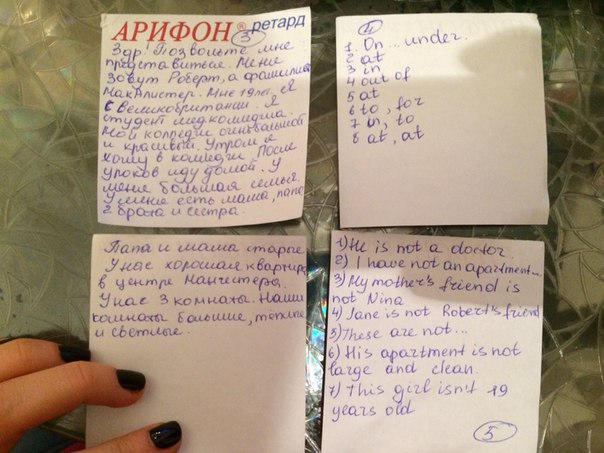 АРИФОН® ретард
3
Здр! Позвольте мне
представиться. Меня
зовут Роберт, а фамилия
МакАлистер. Мне 19 лет. Я
с Великобритании. Я
студент медколледжа.
Мой колледж очень большой
и красивый. Утром я
хожу в колледж. После
уроков иду домой. У
меня большая семья.
У меня есть мама, папа
2 брата и сестра.
4
1. On... under.
2 at
3 in
4 out of
5 at
6 to, for
7 in, to
8 at, at
Папа и мама старые.
У нас хорошая квартира
в центре Манчестера.
У нас 3 комнаты. Наши
комнаты большие, тёплые
и светлые.
1) He is not a doctor.
2) I have not an apartment...
3) My mother's friend is
not Nina
4) Jane is not Robert's friend
5) These are not...
6) His apartment is not
large and clean.
7) This girl isn't 19
years old
5